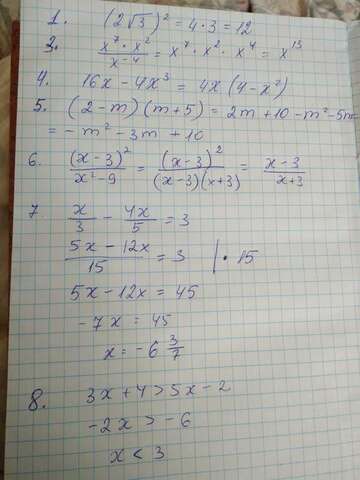 1. (2√3)² = 4 · 3 = 12
3. x⁷ · x² / x⁻⁴ = x⁷ · x² · x⁴ = x¹³
4. 16x - 4x³ = 4x (4 - x²)
5. (2 - m)(m + 5) = 2m + 10 - m² - 5m
= - m² - 3m + 10
6. (x - 3)² / x² - 9 = (x - 3)² / (x - 3)(x + 3) = x - 3 / x + 3
7 x/3 - 4x/5 = 3
5x - 12x / 15 = 3 | · 15
5x - 12x = 45
- 7x = 45
x = - 6 3/7
8. 3x + 4 > 5x - 2
- 2x > - 6
x < 3